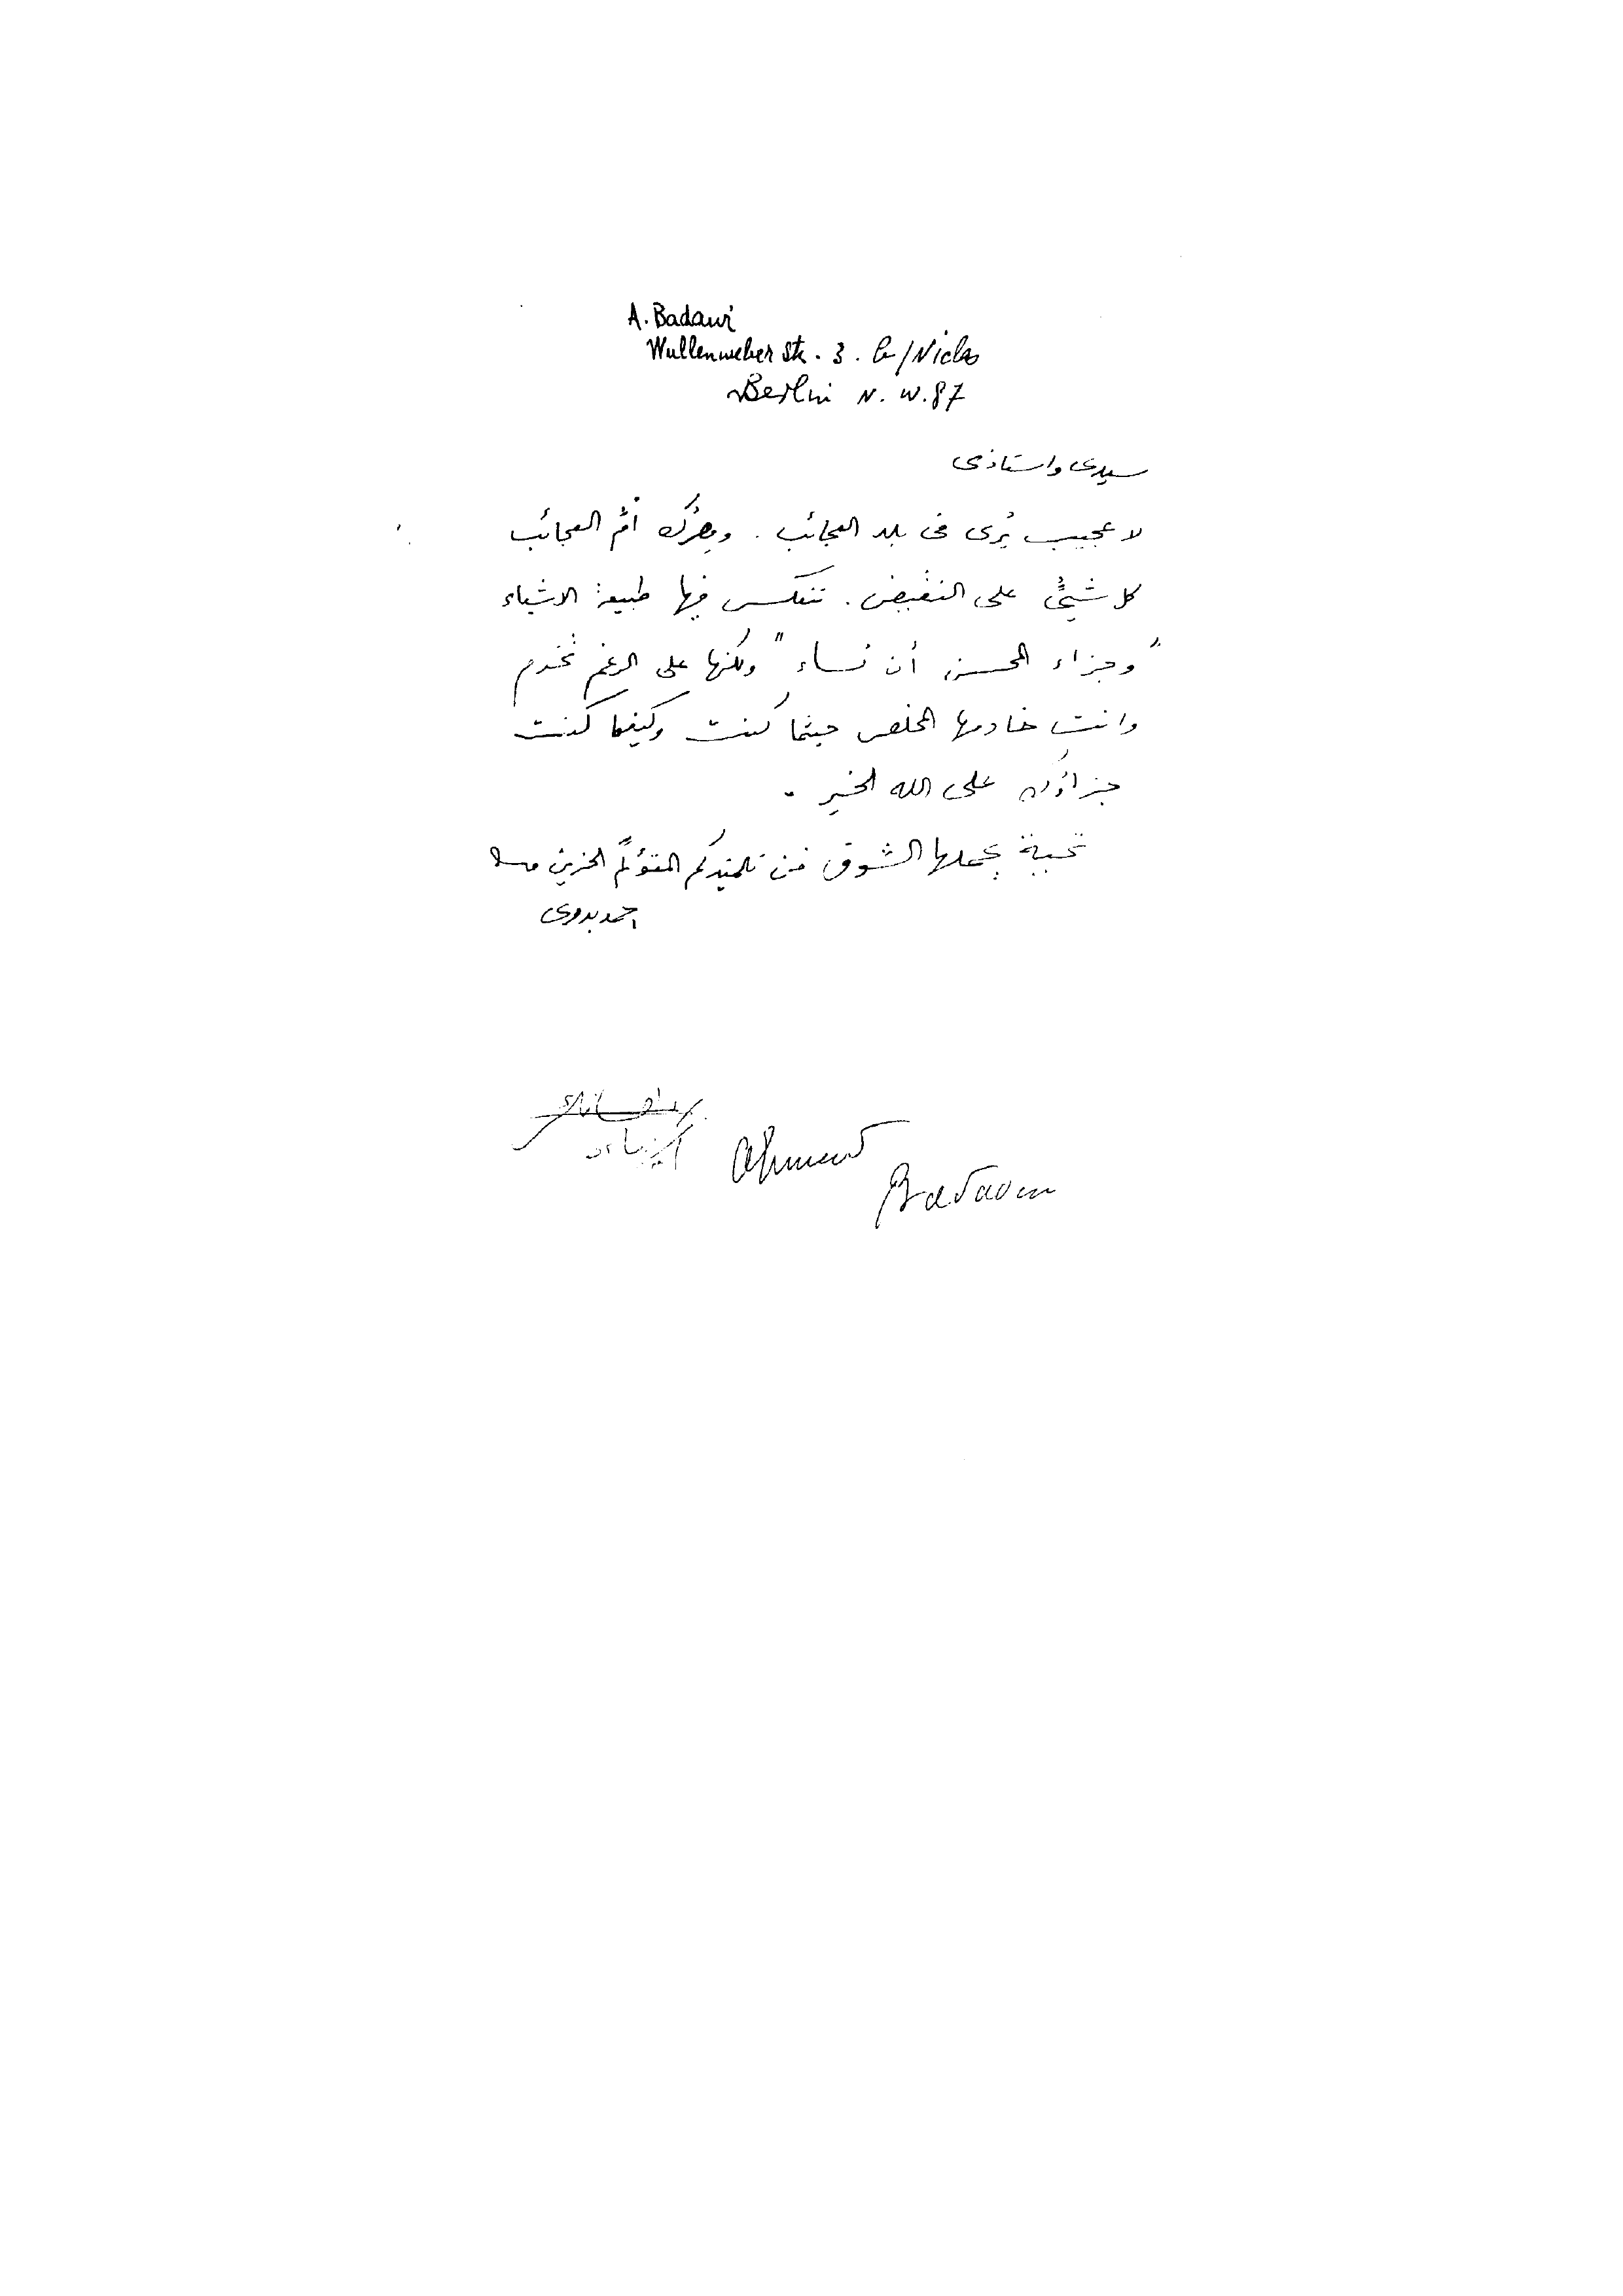 A. Badawi
Wullenweber Str. 3. b/Niclas
Berlin N. W. 87
سيدى واستاذى
لا عجيب يُرى فى بلد العجائب . ومصرُك أمُّ العجائب
كل شيئٍ على النقيض . تنعكس فيها طبيعة الاشياء
"وجزاء المحسن أن يُساء" ولكنها على الرغم تُخدم
وانت خادمها المخلص حيثما كنت وكيفما كنت
جزاؤك على الله الخير .
تحية يحملها الشوق من تلميذكم المتألم الحزين
احمد بدوى
Ahmed
Badawi